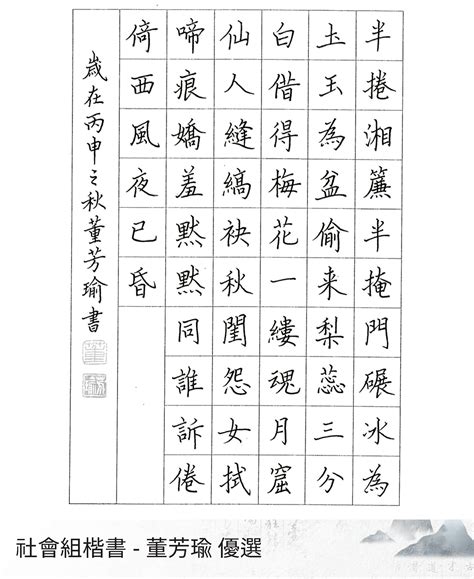 半捲湘簾半掩門碾冰為
圡玉為盆偷来梨蕊三分
白借得梅花一縷魂月窟
仙人縫縞袂秋閨怨女拭
啼痕嬌羞默默同誰訴倦
倚西風夜已昏
歲在丙申之秋董芳瑜書
社會組楷書 - 董芳瑜 優選